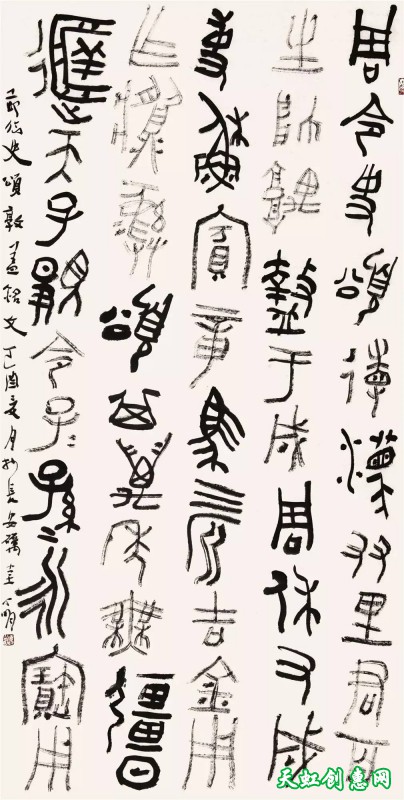 周令史頌徝灋友里君百
生帥堣盩于成周休又成
事穌賓章馬四匹吉金用
乍䵼彝頌其萬年無彊日
遟天子顯令子〻孫〻永寶用
節臨史頌敦蓋銘文丁酉亥月於長安礪堂
天虹创惠网